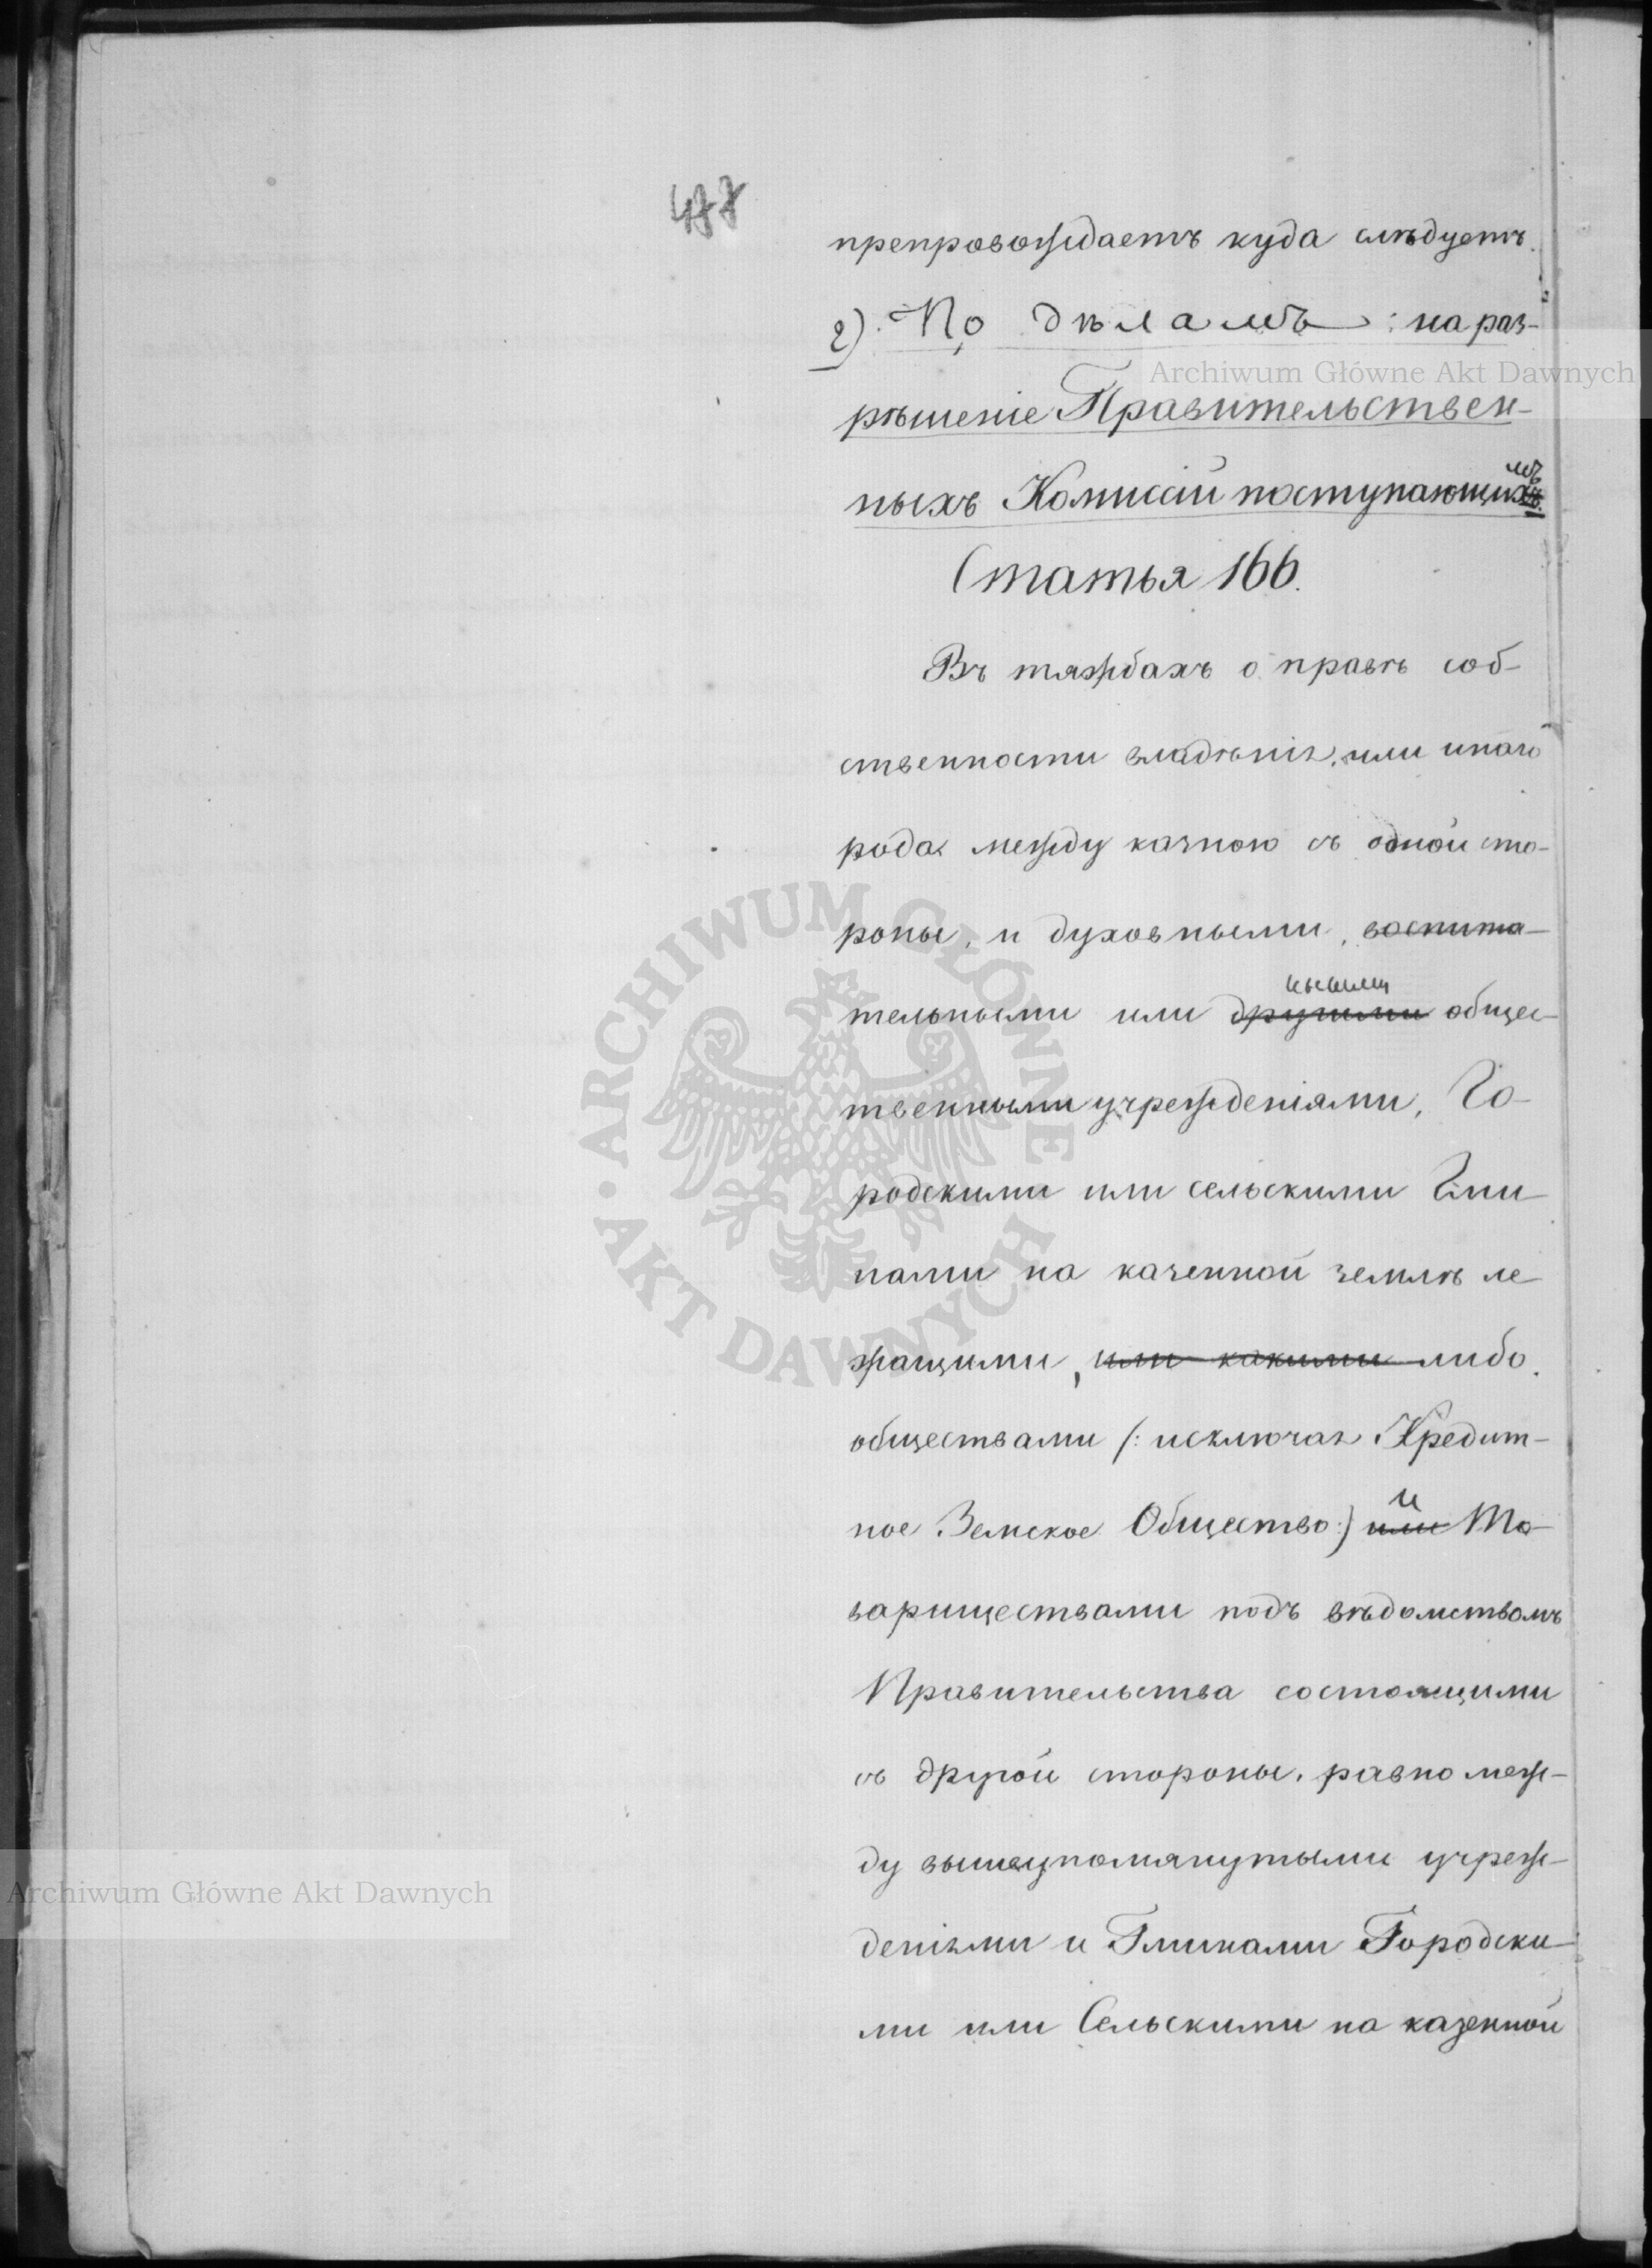 477
препровождаетъ куда слѣдуетъ.
2). По дѣламъ: на раз-
рѣшеніе Правительствен-
ныхъ Комиссій поступающихъ
мъ
Статья 166.
Въ тяжбахъ о правѣ соб-
ственности владѣнія, или инаго
рода между казною съ одной сто-
роны, и духовными, воспита-
тельными или другими общес-
твенными учрежденіями, Го-
родскими или сельскими Гми-
нами на казенной землѣ ле-
жащими, или какими либо
обществами /: исключая Кредит-
ное Земское Общество:) или То-
и
вариществами подъ вѣдомствомъ
Правительства состоящими
съ другой стороны, равно меж-
ду вышеупомянутыми учреж-
деніями и Гминами Городски-
ми или Сельскими на казенной
Archiwum Główne Akt Dawnych
ARCHIWUM GŁÓWNE AKT DAWNYCH
Archiwum Główne Akt Dawnych